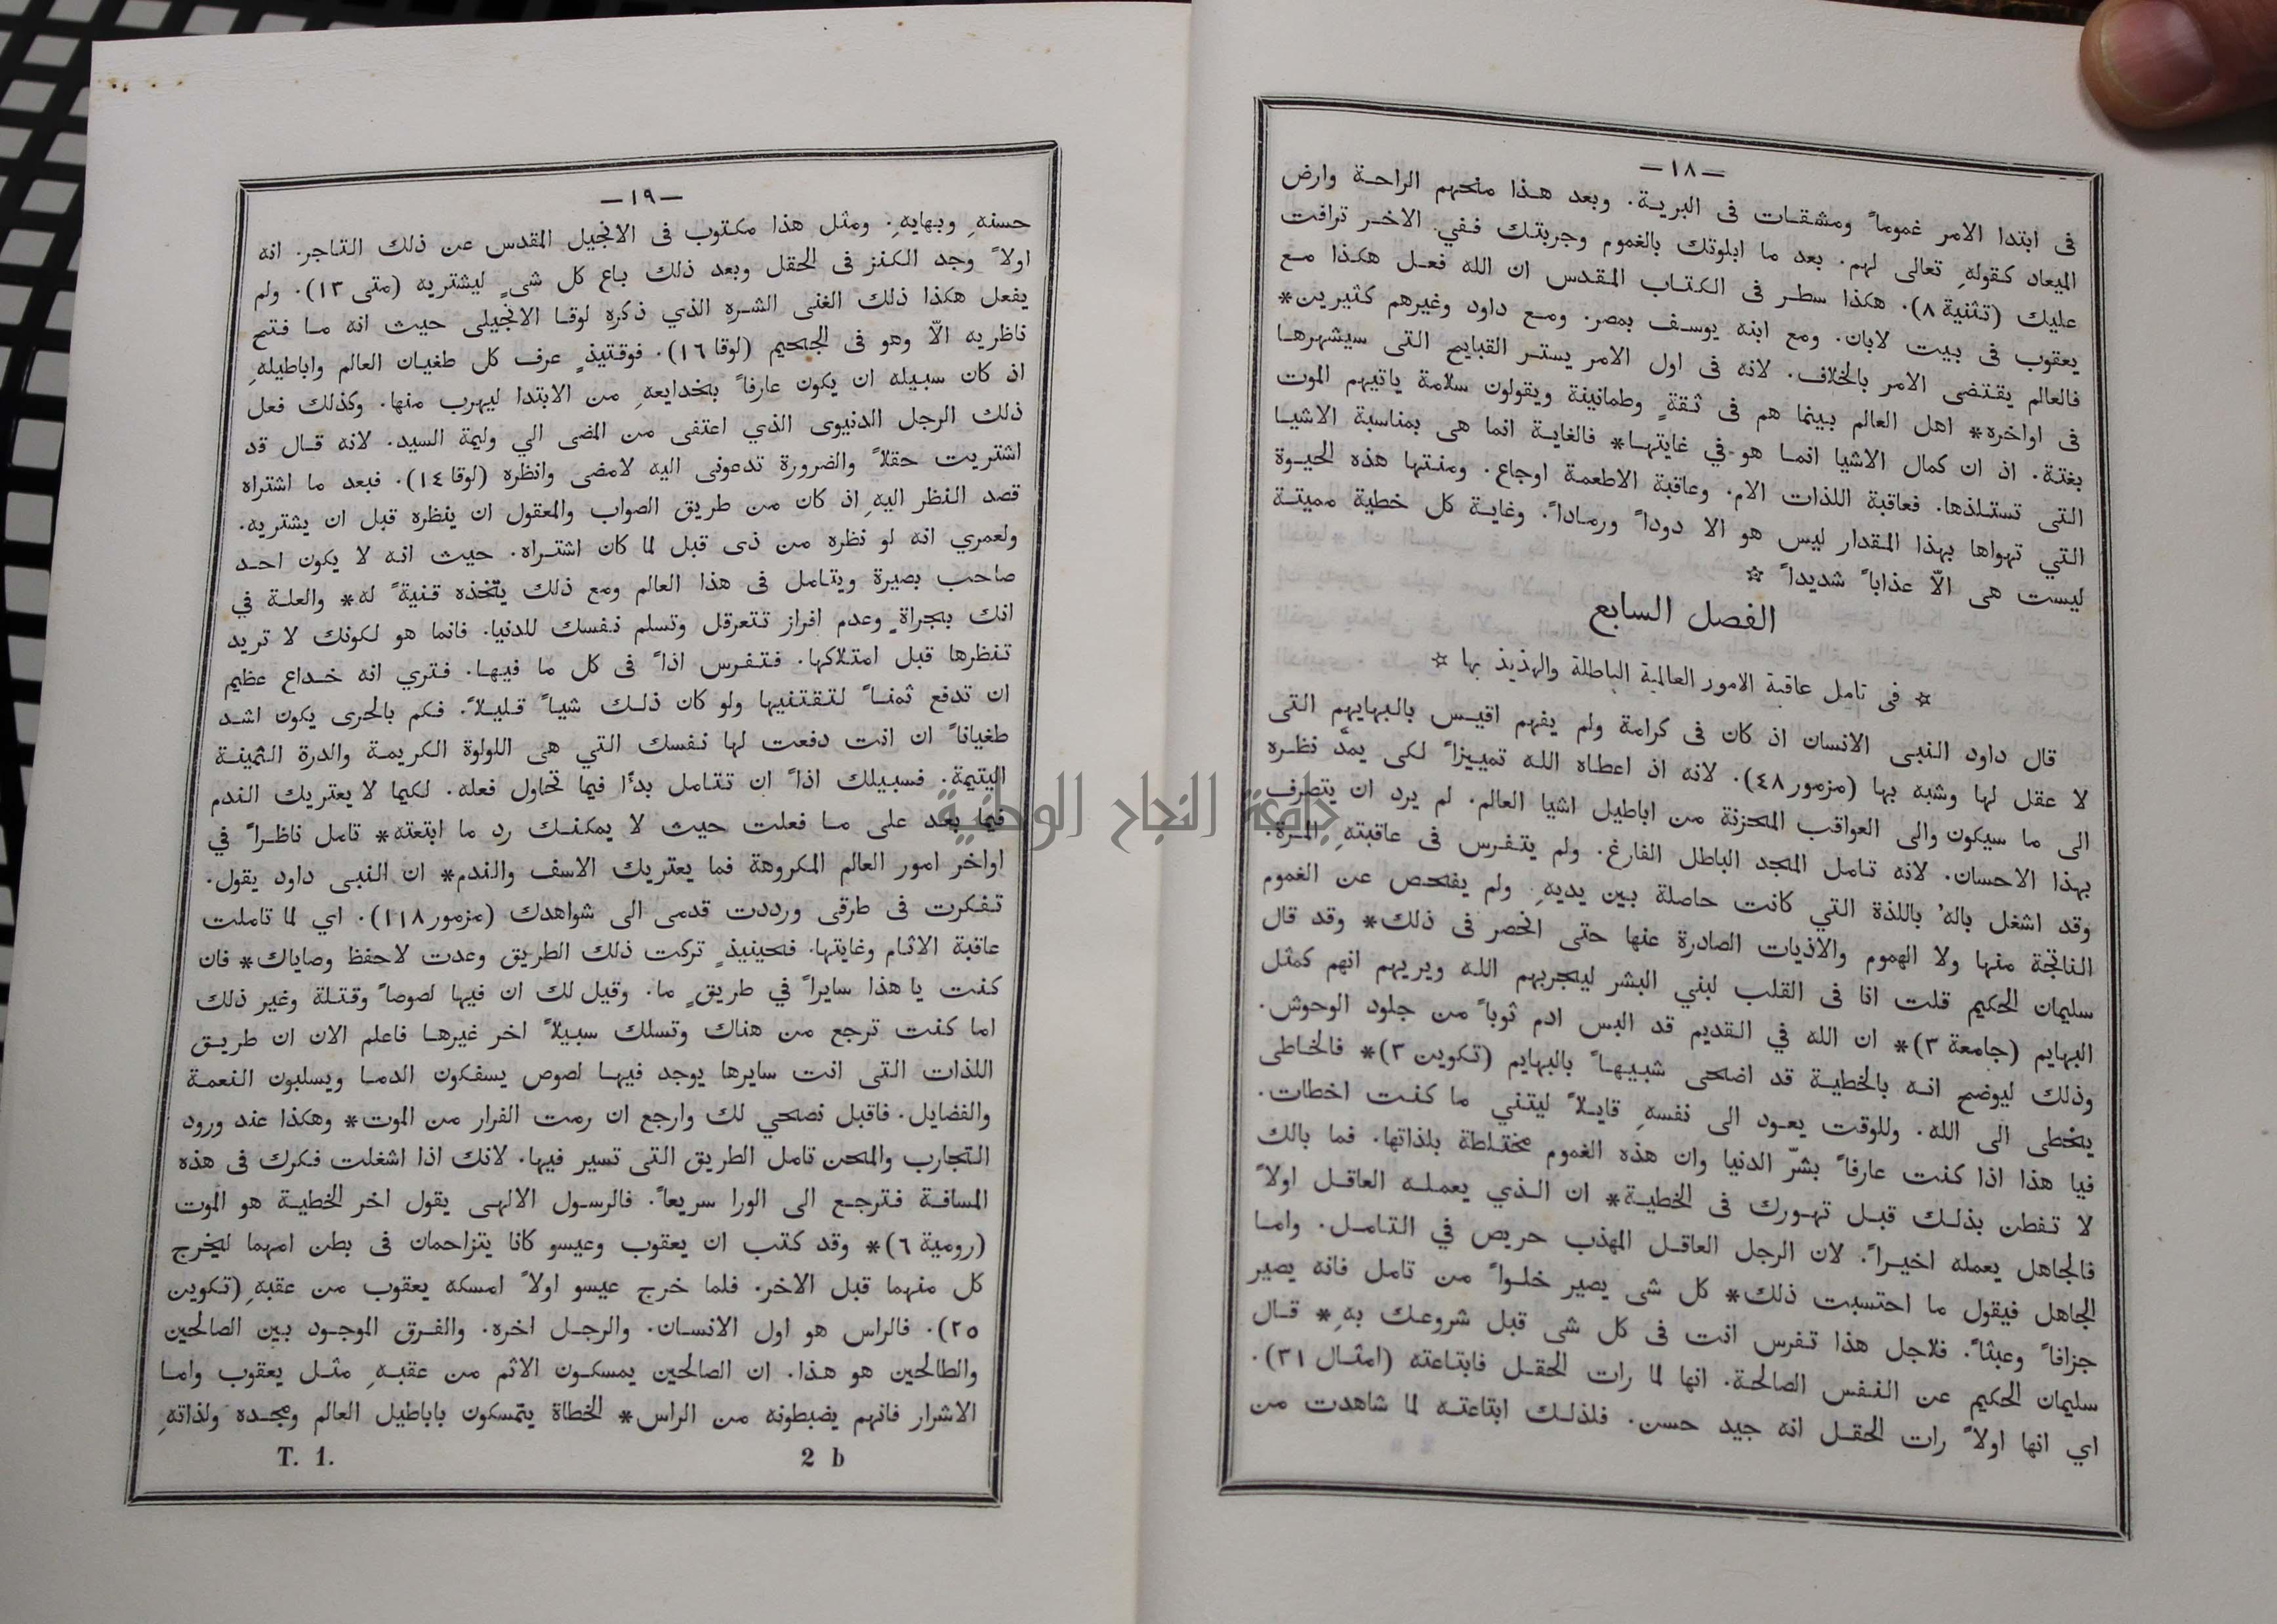 —١٨—
فى ابتدا الامر غموماً ومشقات فى البرية. وبعد هذا منحهم الراحة وارض
الميعاد كقولهِ تعالى لهم. بعد ما ابلوتك بالغموم وجربتك ففي الاخر ترافت
عليك (تثنية ٨). هكذا سطر فى الكتاب المقدس ان الله فعل هكذا مع
يعقوب فى بيت لابان. ومع ابنه يوسف بمصر. ومع داود وغيرهم كثيرين*
فالعالم يقتضى الامر بالخلاف. لانه فى اول الامر يستر القبايح التى سيشهرها
فى اواخره* اهل العالم بينما هم فى ثقةٍ وطمانينة ويقولون سلامة ياتيهم الموت
بغتة. اذ ان كمال الاشيا انما هو في غايتها* فالغاية انما هى بمناسبة الاشيا
التى تستلذها. فعاقبة اللذات الام. وعاقبة الاطعمة اوجاع. ومنتها هذه الحيوة
التي تهواها بهذا المقدار ليس هو الا دوداً ورماداً. وغاية كل خطية مميتة
ليست هى الّا عذاباً شديداً ☆
الفصل السابع
☆ فى تامل عاقبة الامور العالمية الباطلة والهذيذ بها ☆
قال داود النبى الانسان اذ كان فى كرامة ولم يفهم اقيس بالبهايهم التى
لا عقل لها وشبه بها (مزمور ٤٨). لانه اذ اعطاه الله تمييزاً لكى يمدّ نظره
الى ما سيكون والى العواقب المحزنة من اباطيل اشيا العالم. لم يرد ان يتصرف
بهذا الاحسان. لانه تامل المجد الباطل الفارغ. ولم يتفرس فى عاقبتهِ المرة.
وقد اشغل باله' باللذة التي كانت حاصلة بين يديهِ ولم يفحص عن الغموم
الناتجة منها ولا الهموم والاذيات الصادرة عنها حتى انحصر فى ذلك* وقد قال
سليمان الحكيم قلت انا فى القلب لبني البشر ليجربهم الله ويريهم انهم كمثل
البهايم (جامعة ٣)* ان الله في القديم قد البس ادم ثوباً من جلود الوحوش.
وذلك ليوضح انه بالخطية قد اضحى شبيهاً بالبهايم (تكوين ٣)* فالخاطى
يخطى الى الله. وللوقت يعود الى نفسهِ قايلاً ليتني ما كنت اخطات.
فيا هذا اذا كنت عارفاً بشرّ الدنيا وان هذه الغموم مختلطة بلذاتها. فما بالك
لا تفطن بذلك قبل تهورك فى الخطية* ان الذي يعمله العاقل اولاً
فالجاهل يعمله اخيراً. لان الرجل العاقل المهذب حريص في التامل. واما
الجاهل فيقول ما احتسبت ذلك* كل شى يصير خلواً من تامل فانه يصير
جزافاً وعبثاً. فلاجل هذا تفرس انت فى كل شى قبل شروعك بهِ* قال
سليمان الحكيم عن النفس الصالحة. انها لما رات الحقل فابتاعته (امثال ٣١).
اي انها اولاً رات الحقل انه جيد حسن. فلذلك ابتاعته لما شاهدت من
—١٩—
حسنهِ وبهايهِ. ومثل هذا مكتوب فى الانجيل المقدس عن ذلك التاجر. انه
اولاً وجد الكنز فى الحقل وبعد ذلك باع كل شىٍ ليشتريه (متى ١٣). ولم
يفعل هكذا ذلك الغنى الشره الذي ذكره لوقا الانجيلى حيث انه ما فتح
ناظريه الّا وهو فى الجحيم (لوقا ١٦). فوقتيذٍ عرف كل طغيان العالم واباطيلهِ
اذ كان سبيله ان يكون عارفاً بخدايعهِ من الابتدا ليهرب منها. وكذلك فعل
ذلك الرجل الدنيوى الذي اعتفى من المضى الي وليمة السيد. لانه قال قد
اشتريت حقلاً والضرورة تدعونى اليه لامضى وانظره (لوقا ١٤). فبعد ما اشتراه
قصد النظر اليهِ اذ كان من طريق الصواب والمعقول ان ينظره قبل ان يشتريه.
ولعمري انه لو نظره من ذى قبل لما كان اشتراه. حيث انه لا يكون احد
صاحب بصيرة ويتامل فى هذا العالم ومع ذلك يتخذه قنيةً له* والعلة في
انك بجراةٍ وعدم افراز تتعرقل وتسلم نفسك للدنيا. فانما هو لكونك لا تريد
تنظرها قبل امتلاكها. فتفرس اذاً فى كل ما فيها. فتري انه خداع عظيم
ان تدفع ثمناً لتقتنيها ولو كان ذلك شياً قليلاً. فكم بالحرى يكون اشد
طغياناً ان انت دفعت لها نفسك التي هى اللولوة الكريمة والدرة الثمينة
اليتيمة. فسبيلك اذاً ان تتامل بدًا فيما تحاول فعله. لكيما لا يعتريك الندم
فيما بعد على ما فعلت حيث لا يمكنك رد ما ابتعته* تامل ناظراً في
اواخر امور العالم المكروهة فما يعتريك الاسف والندم* ان النبى داود يقول.
تفكرت فى طرقى ورددت قدمى الى شواهدك (مزمور ١١٨). اي لما تاملت
عاقبة الاثام وغايتها. فحينيذٍ تركت ذلك الطريق وعدت لاحفظ وصاياك* فان
كنت يا هذا سايراً في طريقٍ ما. وقيل لك ان فيها لصوصاً وقتلة وغير ذلك
اما كنت ترجع من هناك وتسلك سبيلاً اخر غيرها فاعلم الان ان طريق
اللذات التى انت سايرها يوجد فيها لصوص يسفكون الدما ويسلبون النعمة
والفضايل. فاقبل نصحي لك وارجع ان رمت الفرار من الموت* وهكذا عند ورود
التجارب والمحن تامل الطريق التى تسير فيها. لانك اذا اشغلت فكرك فى هذه
المسافة فترجع الى الورا سريعاً. فالرسول الالهى يقول اخر الخطية هو الموت
(رومية ٦)* وقد كتب ان يعقوب وعيسو كانا يتزاحمان فى بطن امهما ليخرج
كل منهما قبل الاخر. فلما خرج عيسو اولاً امسكه يعقوب من عقبهِ (تكوين
٢٥). فالراس هو اول الانسان. والرجل اخره. والفرق الموجود بين الصالحين
والطالحين هو هذا. ان الصالحين يمسكون الاثم من عقبهِ مثل يعقوب واما
الاشرار فانهم يضبطونه من الراس* الخطاة يتمسكون باباطيل العالم ومجده ولذاتهِ
T. 1. 2 b
جامعة النجاح الوطنية